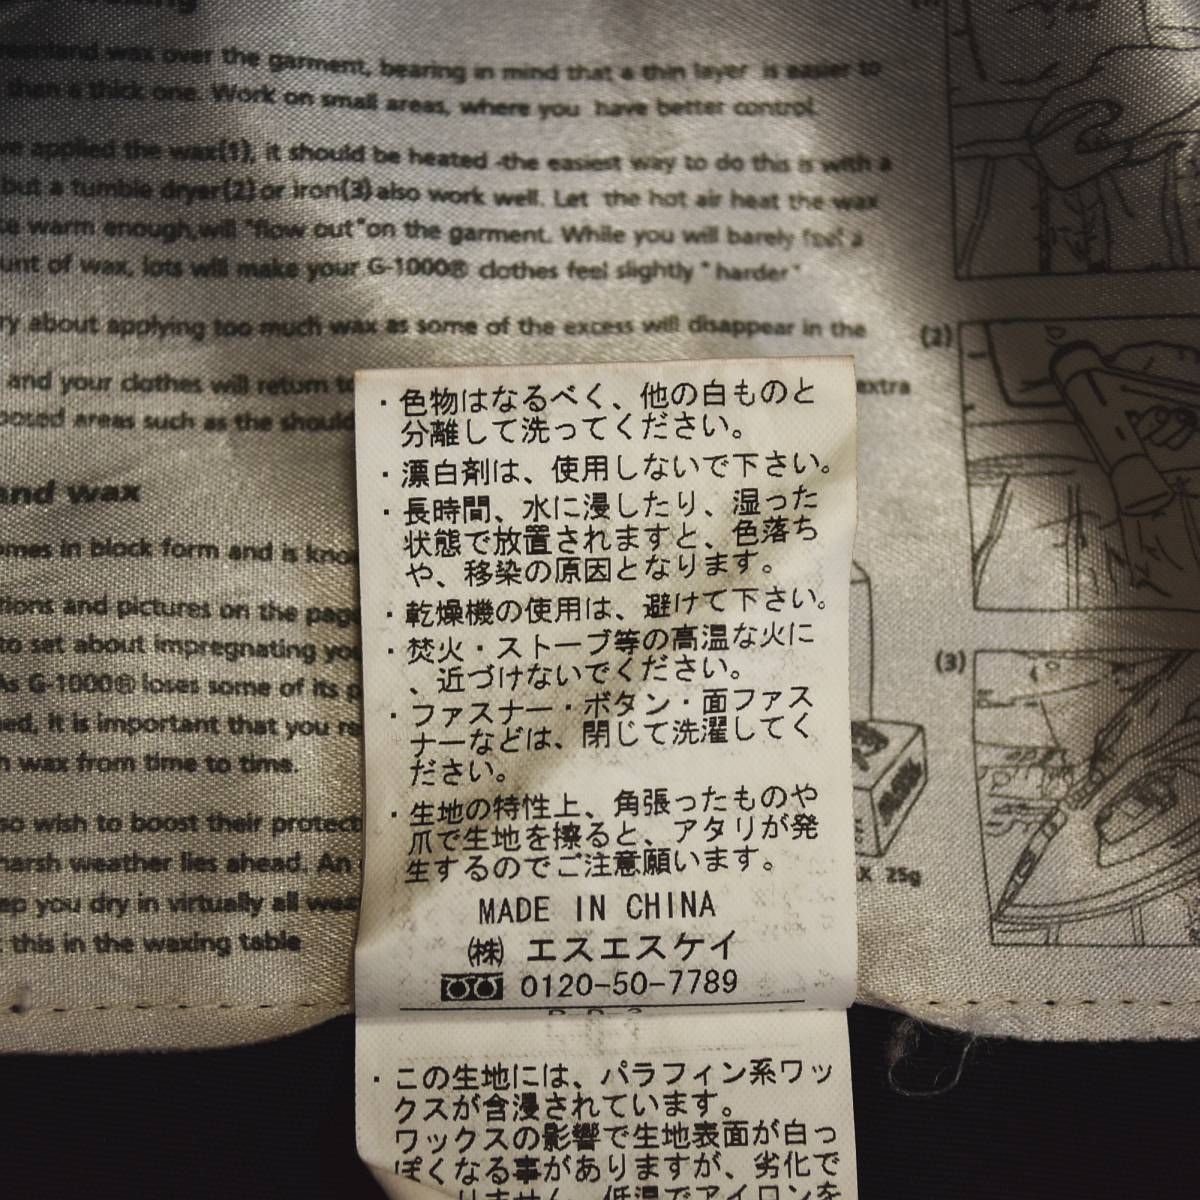 wax over the garment, bearing in mind that a thin layer is easier to
than a thick one. Work on small areas, where you have better control.
applied the wax(1), it should be heated -the easiest way to do this is with a
but a tumble dryer(2)or iron(3)also work well. Let the hot air heat the wax
warm enough,will "flow out"on the garment. While you will barely feel a
of wax, lots will make your G-1000® clothes feel slightly "harder"
about applying too much wax as some of the excess will disappear in the
and your clothes will return to
extra
areas such as the
and wax
in block form and is
and pictures on the
to set about impregnating
As G-1000® loses some of its
it is important that you
wax from time to time.
wish to boost their
harsh weather lies ahead. An
you dry in virtually all
this in the waxing table
(2)
(3)
25g
・色物はなるべく、他の白ものと
分離して洗ってください。
・漂白剤は、使用しないで下さい。
・長時間、水に浸したり、湿った
状態で放置されますと、色落ち
や、移染の原因となります。
・乾燥機の使用は、避けて下さい。
・焚火・ストーブ等の高温な火に
、近づけないでください。
・ファスナー・ボタン・面ファス
ナーなどは、閉じて洗濯してく
ださい。
・生地の特性上、角張ったものや
爪で生地を擦ると、アタリが発
生するのでご注意願います。
MADE IN CHINA
㈱ エスエスケイ
0120-50-7789
・この生地には、パラフィン系ワッ
クスが含浸されています。
ワックスの影響で生地表面が白っ
ぽくなる事がありますが、劣化で
りません。低温でアイロンを